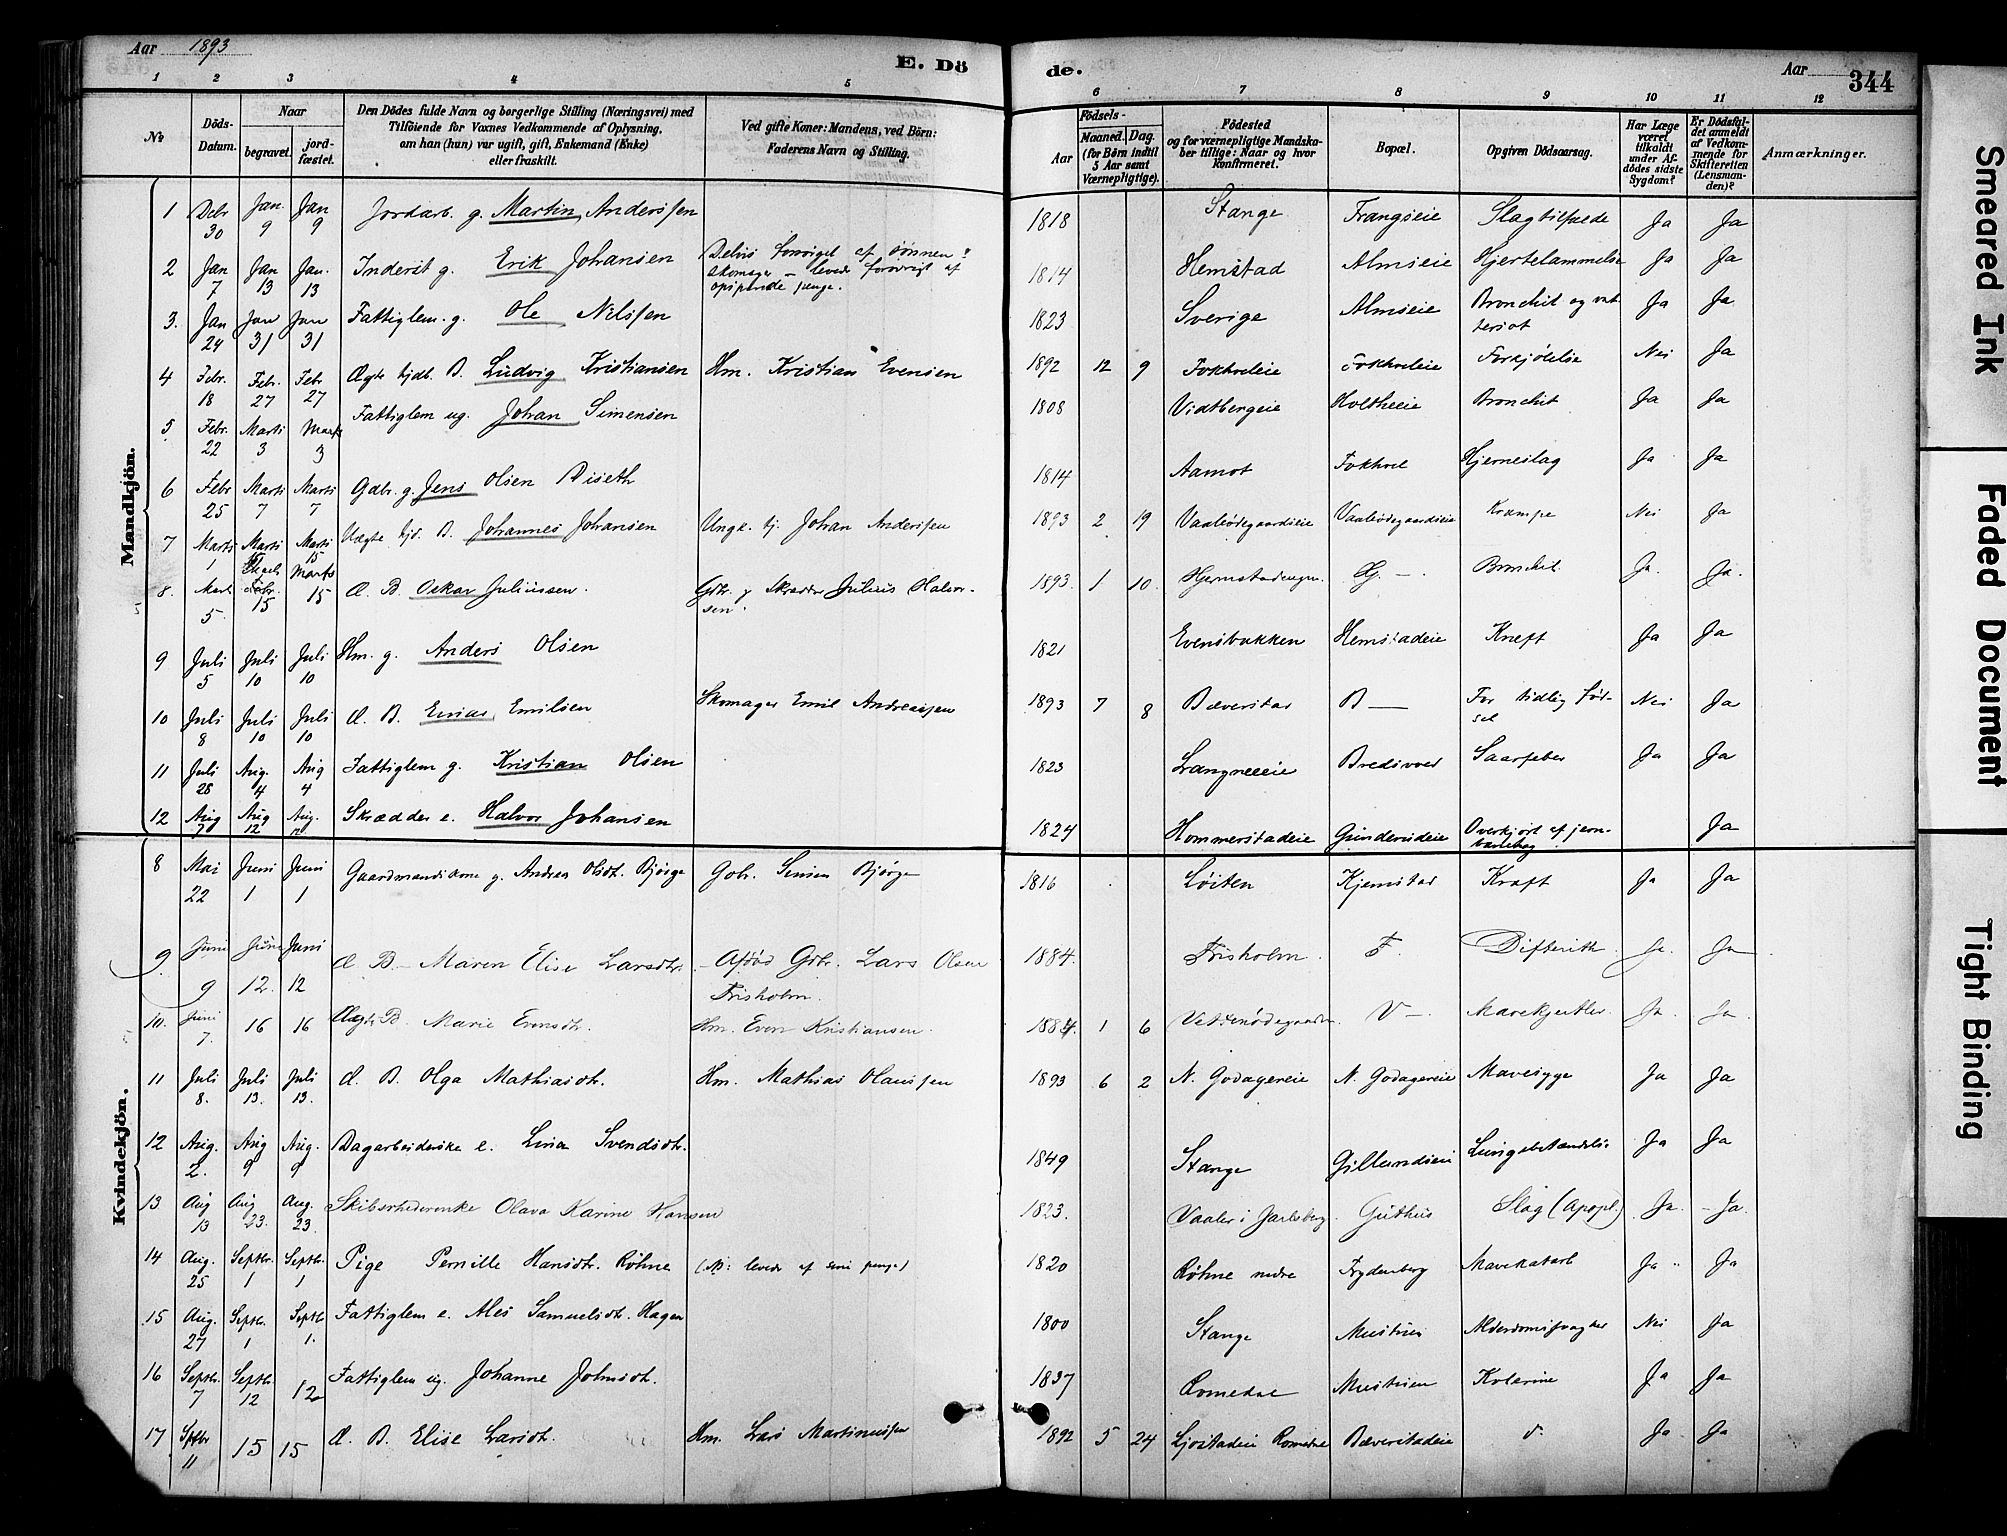 Aar 1893
E. Dö
de.
Aar
344
1 2 3 4 5 6 7 8 9 10 11 12
№
Döds-Datum.
Naar
begravet.
jord-fæstet.
Den Dödes fulde Navn og borgerlige Stilling (Næringsvei) med
Tilföiende for Voxnes Vedkommende af Oplysning,
om han (hun) var ugift, gift, Enkemand (Enke)
eller fraskilt.
Ved gifte Koner: Mandens, ved Börn:
Faderens Navn og Stilling.
Födsels-
Aar
Maaned. Dag.
(for Börn indtil
5 Aar samt
Værnepligtige).
Födested
og for værnepligtige Mandska-
ber tillige: Naar og hvor
konfirmeret.
Bopæl.
Opgiven Dödsaarsag.
Har Læge
været
tilkaldt
under Af-
dödes sidste
Sygdom?
Er Dödsfal-
det anmeldt
af Vedkom-
mende for
Skifteretten
(Lensman-
den)?
Anmærkninger.
Mandkjön.
1 Debr 30 Jan. 9 Jan 9 Jordarb. g. Martin Anderssen 1818 Stange Frangseie Slagtilfælde Ja Ja
2 Jan 7 Jan 13 Jan. 13 Inderst g. Erik Johansen Delvis forsørget af sønnen
Skomager – levede forøvrigt af
opsparede penge. 1814 Hemstad Almseie Hjertelammelse Ja Ja
3. Jan 24 Jan 31 Jan 31 Fattiglem. g. Ole Nilssen 1823 Sverige Almseie Bronchit og vat-
tersot Ja Ja
4 Febr. 18 Febr. 27 Febr. 27 Ægte hjdb. B. Ludvig Kristiansen Hm. Kristian Evensen 1892 12 9 Fokholeie Fokholeie Forkjølelse Nei Ja
5 Febr. 22 Marts 3 Marts 3 Fattiglem ug. Johan Simensen 1808 Vidtbergeie Holtheeie Bronchit Ja Ja
6 Febr 25 Marts 7 Marts 7 Gdbr. g. Jens Olsen Diseth 1814 Aamot Fokhol Hjerneslag Ja Ja
7 Marts 1 Marts 15 Marts 15 Uægte hjd. B. Johannes Johansen Ungk. tj. Johan Anderssen 1893 2 19 Vaalødegaardseie Vaalødegaardseie Krampe Nei Ja
8. Marts 5. Marts 15 Marts 15 Æ. B. Oskar Juliussen. Gdbr. g Skrædder Julius Halvor-
sen. 1893. 1 10. Hjemstadengen. Hj. – Bronchit Ja. Ja.
9 Juli 5 Juli 10 Juli 10 Hm. g. Anders Olsen 1821 Evensbakken Hemstadeie Kræft Ja Ja
10 Juli 8 Juli 10 Juli 10 Æ. B. Einar Emilsen Skomager Emil Andreassen 1893 7 8 Bæverstad B — For tidlig fød-
sel Nei Ja
11 Juli 28 Aug. 4 Aug 4 Fattiglem g. Kristian Olsen 1823 Langneseie Bredsvoll Saarfeber Ja Ja
12 Aug 7 Aug 12 Aug. 12 Skrædder e. Halvor Johansen 1824 Hommerstadeie Gunderudeie Overkjørt af jern-
banetog Ja
Kvindekjön.
8 Mai 22 Juni 1 Juni 1 Gaardmandskone g. Andrea Olsdt. Bjørge Gbr. Simen Bjørge 1816 Løiten Kjemstad Kræft Ja Ja
9 Juni 9 Juni 12. Juni 12 Æ B – Maren Elise Larsdtr. – Afdød Gbr. Lars Olsen
Frisholm. 1884. Frisholm. F. Difterith. Ja. Ja
10. Juni 7. 16 16 Uægte B Marie Evensdt. Hm. Even Kristiansen. 1884. 1 6 V –. Mavekjertler. Ja. Ja.
11 Juli 8. Juli 13. Juli 13. Æ. B. Olga Mathiasdt. Hm. Mathias Olaussen 1893 6 2 N. Godagereie N. Godagereie Mavesyge Ja Ja
12 Aug. 2. Aug 9 Aug. 9 Dagarbeiderske e. Lina Svendsdt. 1849 Stange Gillundseie Lungebetændelse Ja Ja
13 Aug 13 Aug 23. Aug. 23 Skibsrhederenke Olava Karine Hansen 1823. Vaaler i Jarlsberg. Guthus Slag (Apopl.) Ja. – Ja.
14 Aug. 25 Septbr. 1 Septbr. 1 Pige Pernille Hansdtr. Røhne (NB: levede af sine penge) 1820 Røhne nedre Frydenberg Mavekatarh Ja Ja
15 Aug. 27 Septbr. 1 Septb 1. Fattiglem e. Ales Samuelsdtr. Hagen 1800 Stange Mustuen Alderdomssvaghed Nei Ja
16 Septbr. 7 Septbr. 12 12 Fattiglem ug. Johanne Johnsdt. 1837 Romedal Mustuen Kolerine Ja Ja
17. Septbr 11 15 15 Æ. B. Elise Larsdt. Hm. Lars Martinussen 1892 5 24 Ljostadeie Romedal Bæverstadeie d. Ja Ja
Smeared Ink
Faded Document
Tight Binding